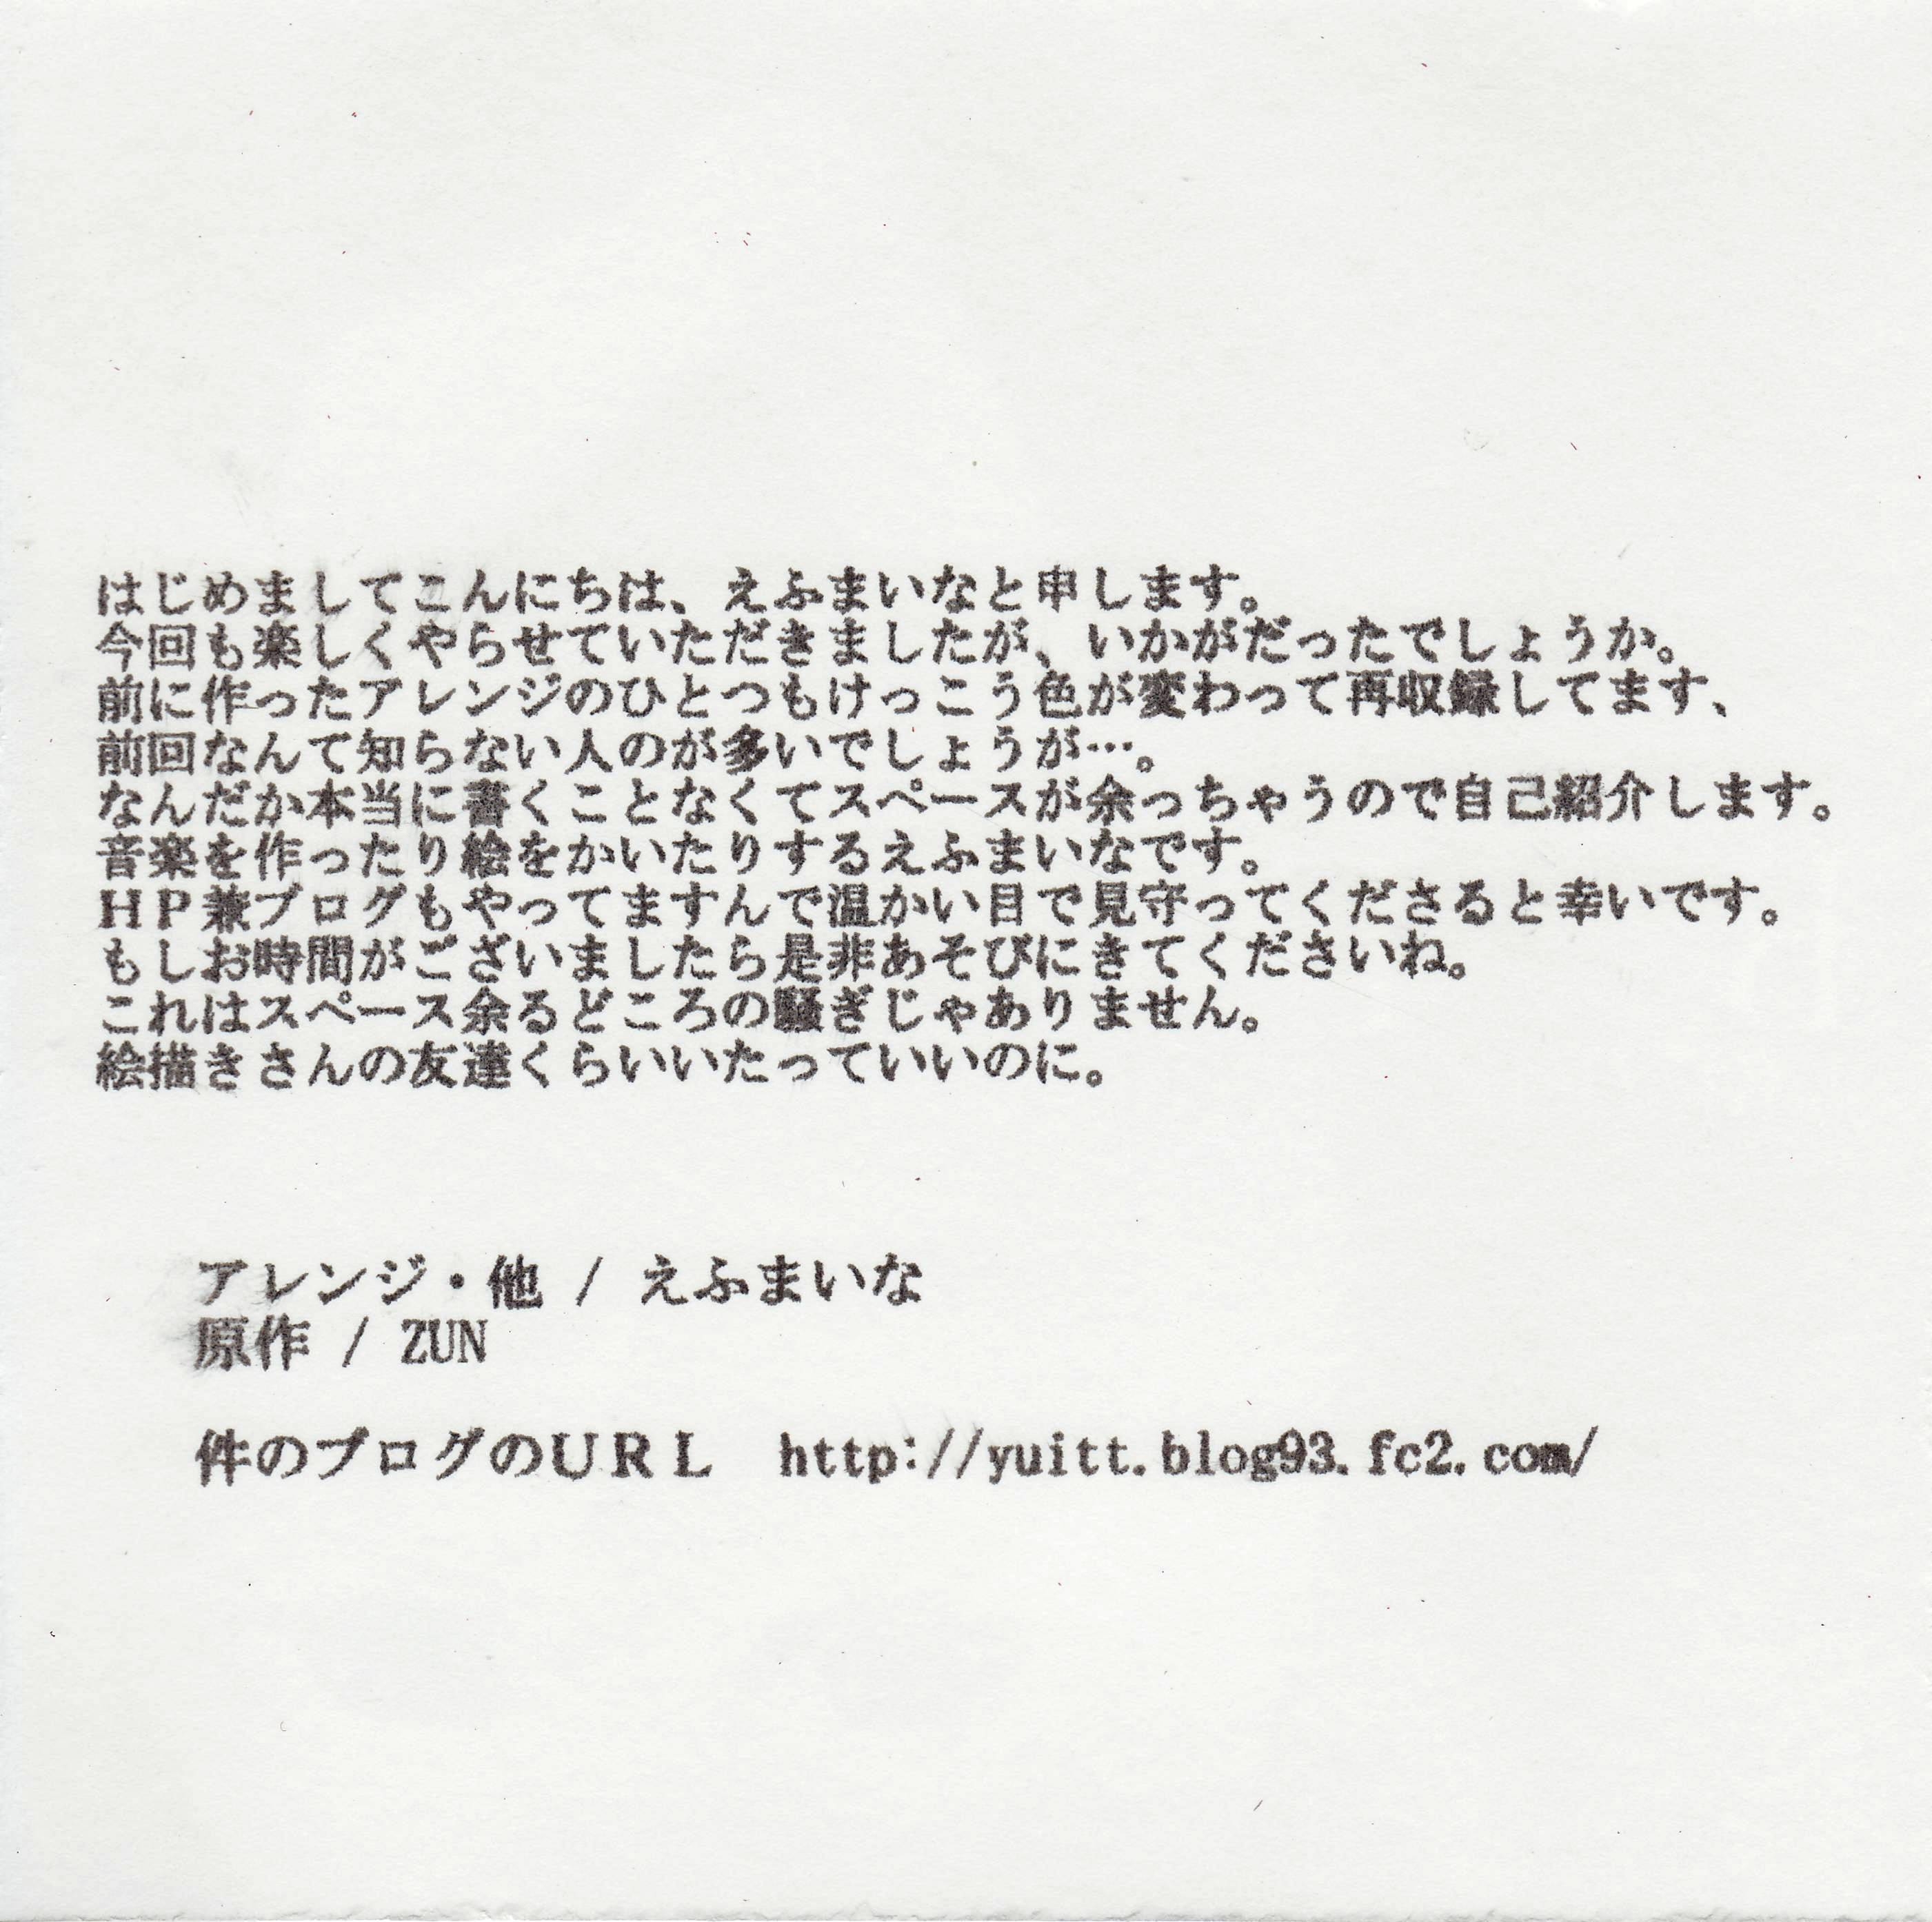 はじめましてこんにちは、えふまいなと申します。
今回も楽しくやらせていただきましたが、いかがだったでしょうか。
前に作ったアレンジのひとつもけっこう色が変わって再収録してます、
前回なんて知らない人のが多いでしょうが…。
なんだか本当に書くことなくてスペースが余っちゃうので自己紹介します。
音楽を作ったり絵をかいたりするえふまいなです。
ＨＰ兼ブログもやってますんで温かい目で見守ってくださると幸いです。
もしお時間がございましたら是非あそびにきてくださいね。
これはスペース余るどころの騒ぎじゃありません。
絵描きさんの友達くらいいたっていいのに。
アレンジ・他 / えふまいな
原作 / ZUN
件のブログのＵＲＬ　http://yuitt.blog93.fc2.com/